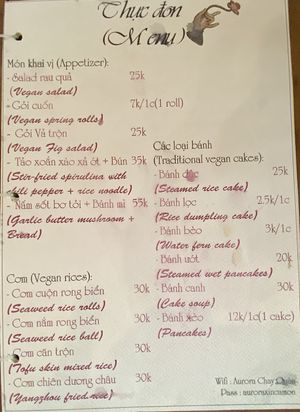 Thực đơn
(Menu)
Món khai vị (Appetizer):
- Salad rau quả 25k
(Vegan salad)
- Gỏi cuốn 7k/1c(1 roll)
(Vegan spring rolls)
- Gỏi Vả trộn 25k
(Vegan Fig salad)
- Tảo xoắn xào xả ớt + Bún 35k
(Stir-fried spirulina with
chili pepper + rice noodle)
- Nấm sốt bơ tỏi + Bánh mì 55k
(Garlic butter mushroom +
Bread)
Cơm (Vegan rices):
- Cơm cuộn rong biển 30k
(Seaweed rice rolls)
- Cơm nắm rong biển 30k
(Seaweed rice ball)
- Cơm cán trộn 30k
(Tofu skin mixed rice)
- Cơm chiên dương châu 30k
(Yangzhou fried rice)
Các loại bánh
(Traditional vegan cakes):
- Bánh đúc 25k
(Steamed rice cake)
- Bánh lọc 2.5k/1c
(Rice dumpling cake)
- Bánh bèo 3k/1c
(Water fern cake)
- Bánh ướt 20k
(Steamed wet pancakes)
- Bánh canh 30k
(Cake soup)
- Bánh xèo 12k/1c(1 cake)
(Pancakes)
Wifi : Aurora Chay Quán
Pass :